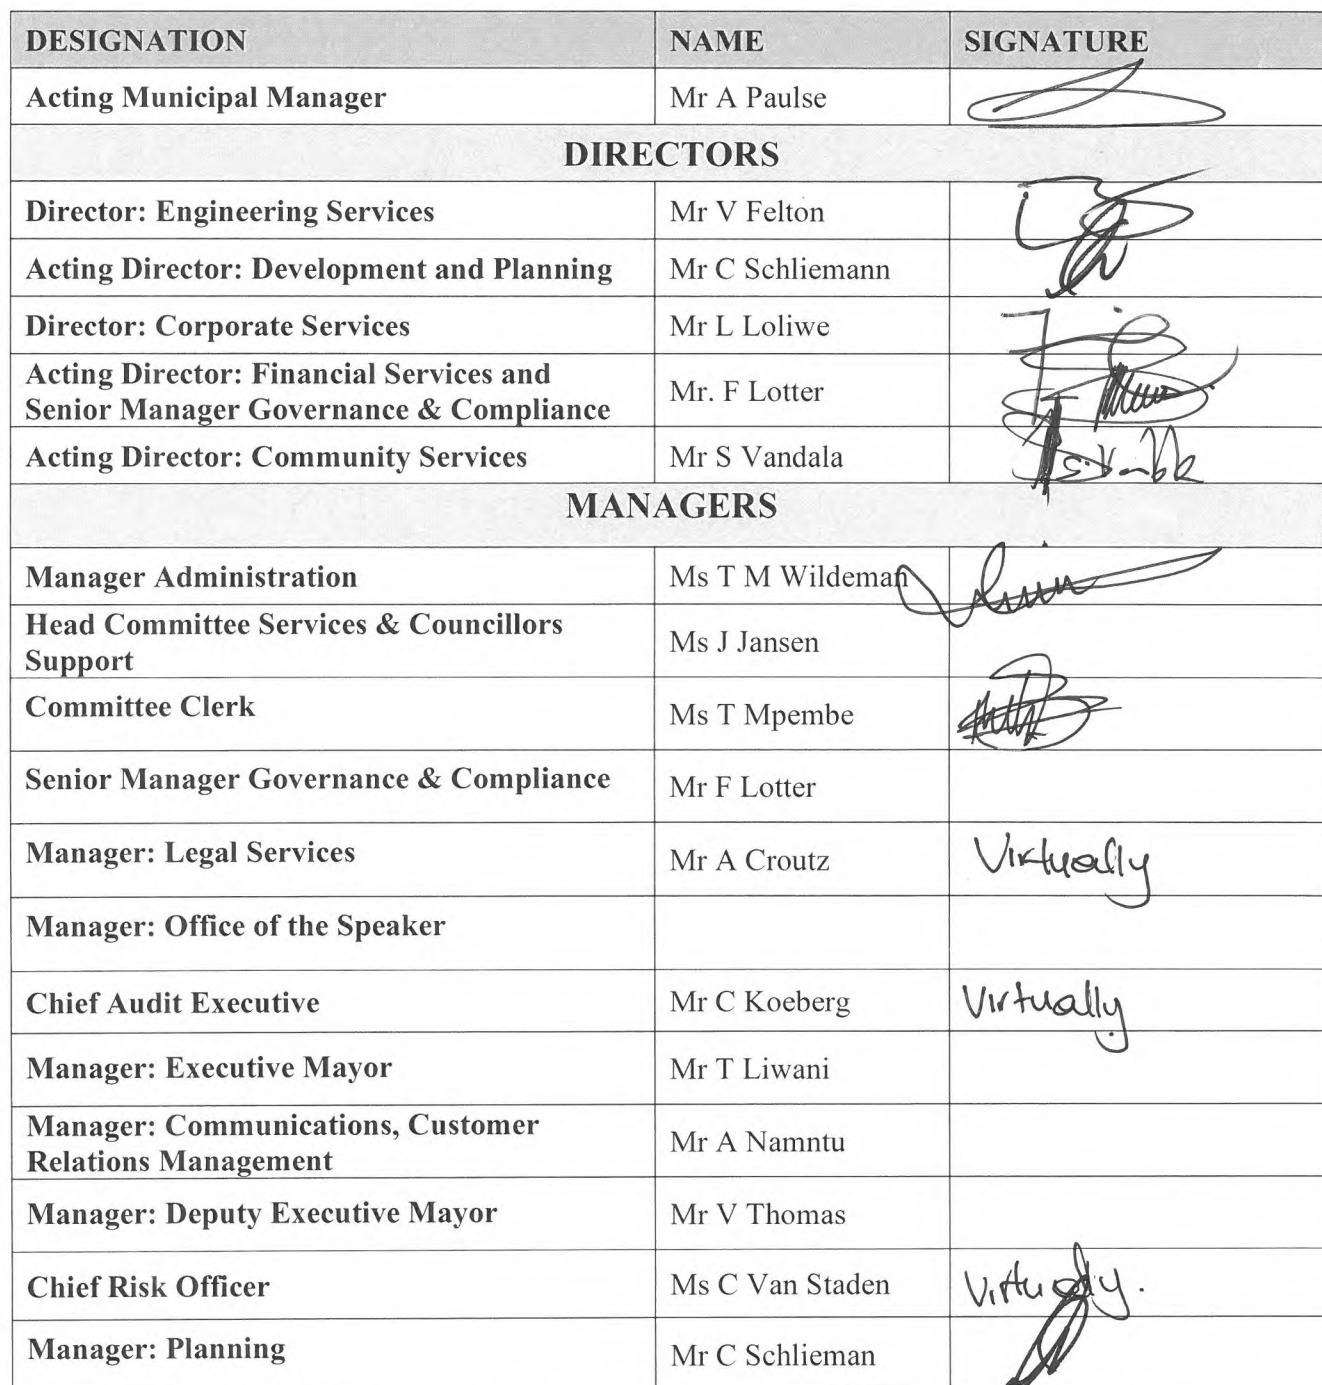 DESIGNATION NAME SIGNATURE
Acting Municipal Manager Mr A Paulse
DIRECTORS
Director: Engineering Services Mr V Felton
Acting Director: Development and Planning Mr C Schliemann
Director: Corporate Services Mr L Loliwe
Acting Director: Financial Services and
Senior Manager Governance & Compliance Mr. F Lotter
Acting Director: Community Services Mr S Vandala
MANAGERS
Manager Administration Ms T M Wildeman
Head Committee Services & Councillors
Support Ms J Jansen
Committee Clerk Ms T Mpembe
Senior Manager Governance & Compliance Mr F Lotter
Manager: Legal Services Mr A Croutz Virtually
Manager: Office of the Speaker
Chief Audit Executive Mr C Koeberg Virtually
Manager: Executive Mayor Mr T Liwani
Manager: Communications, Customer
Relations Management Mr A Namntu
Manager: Deputy Executive Mayor Mr V Thomas
Chief Risk Officer Ms C Van Staden Virtually.
Manager: Planning Mr C Schlieman